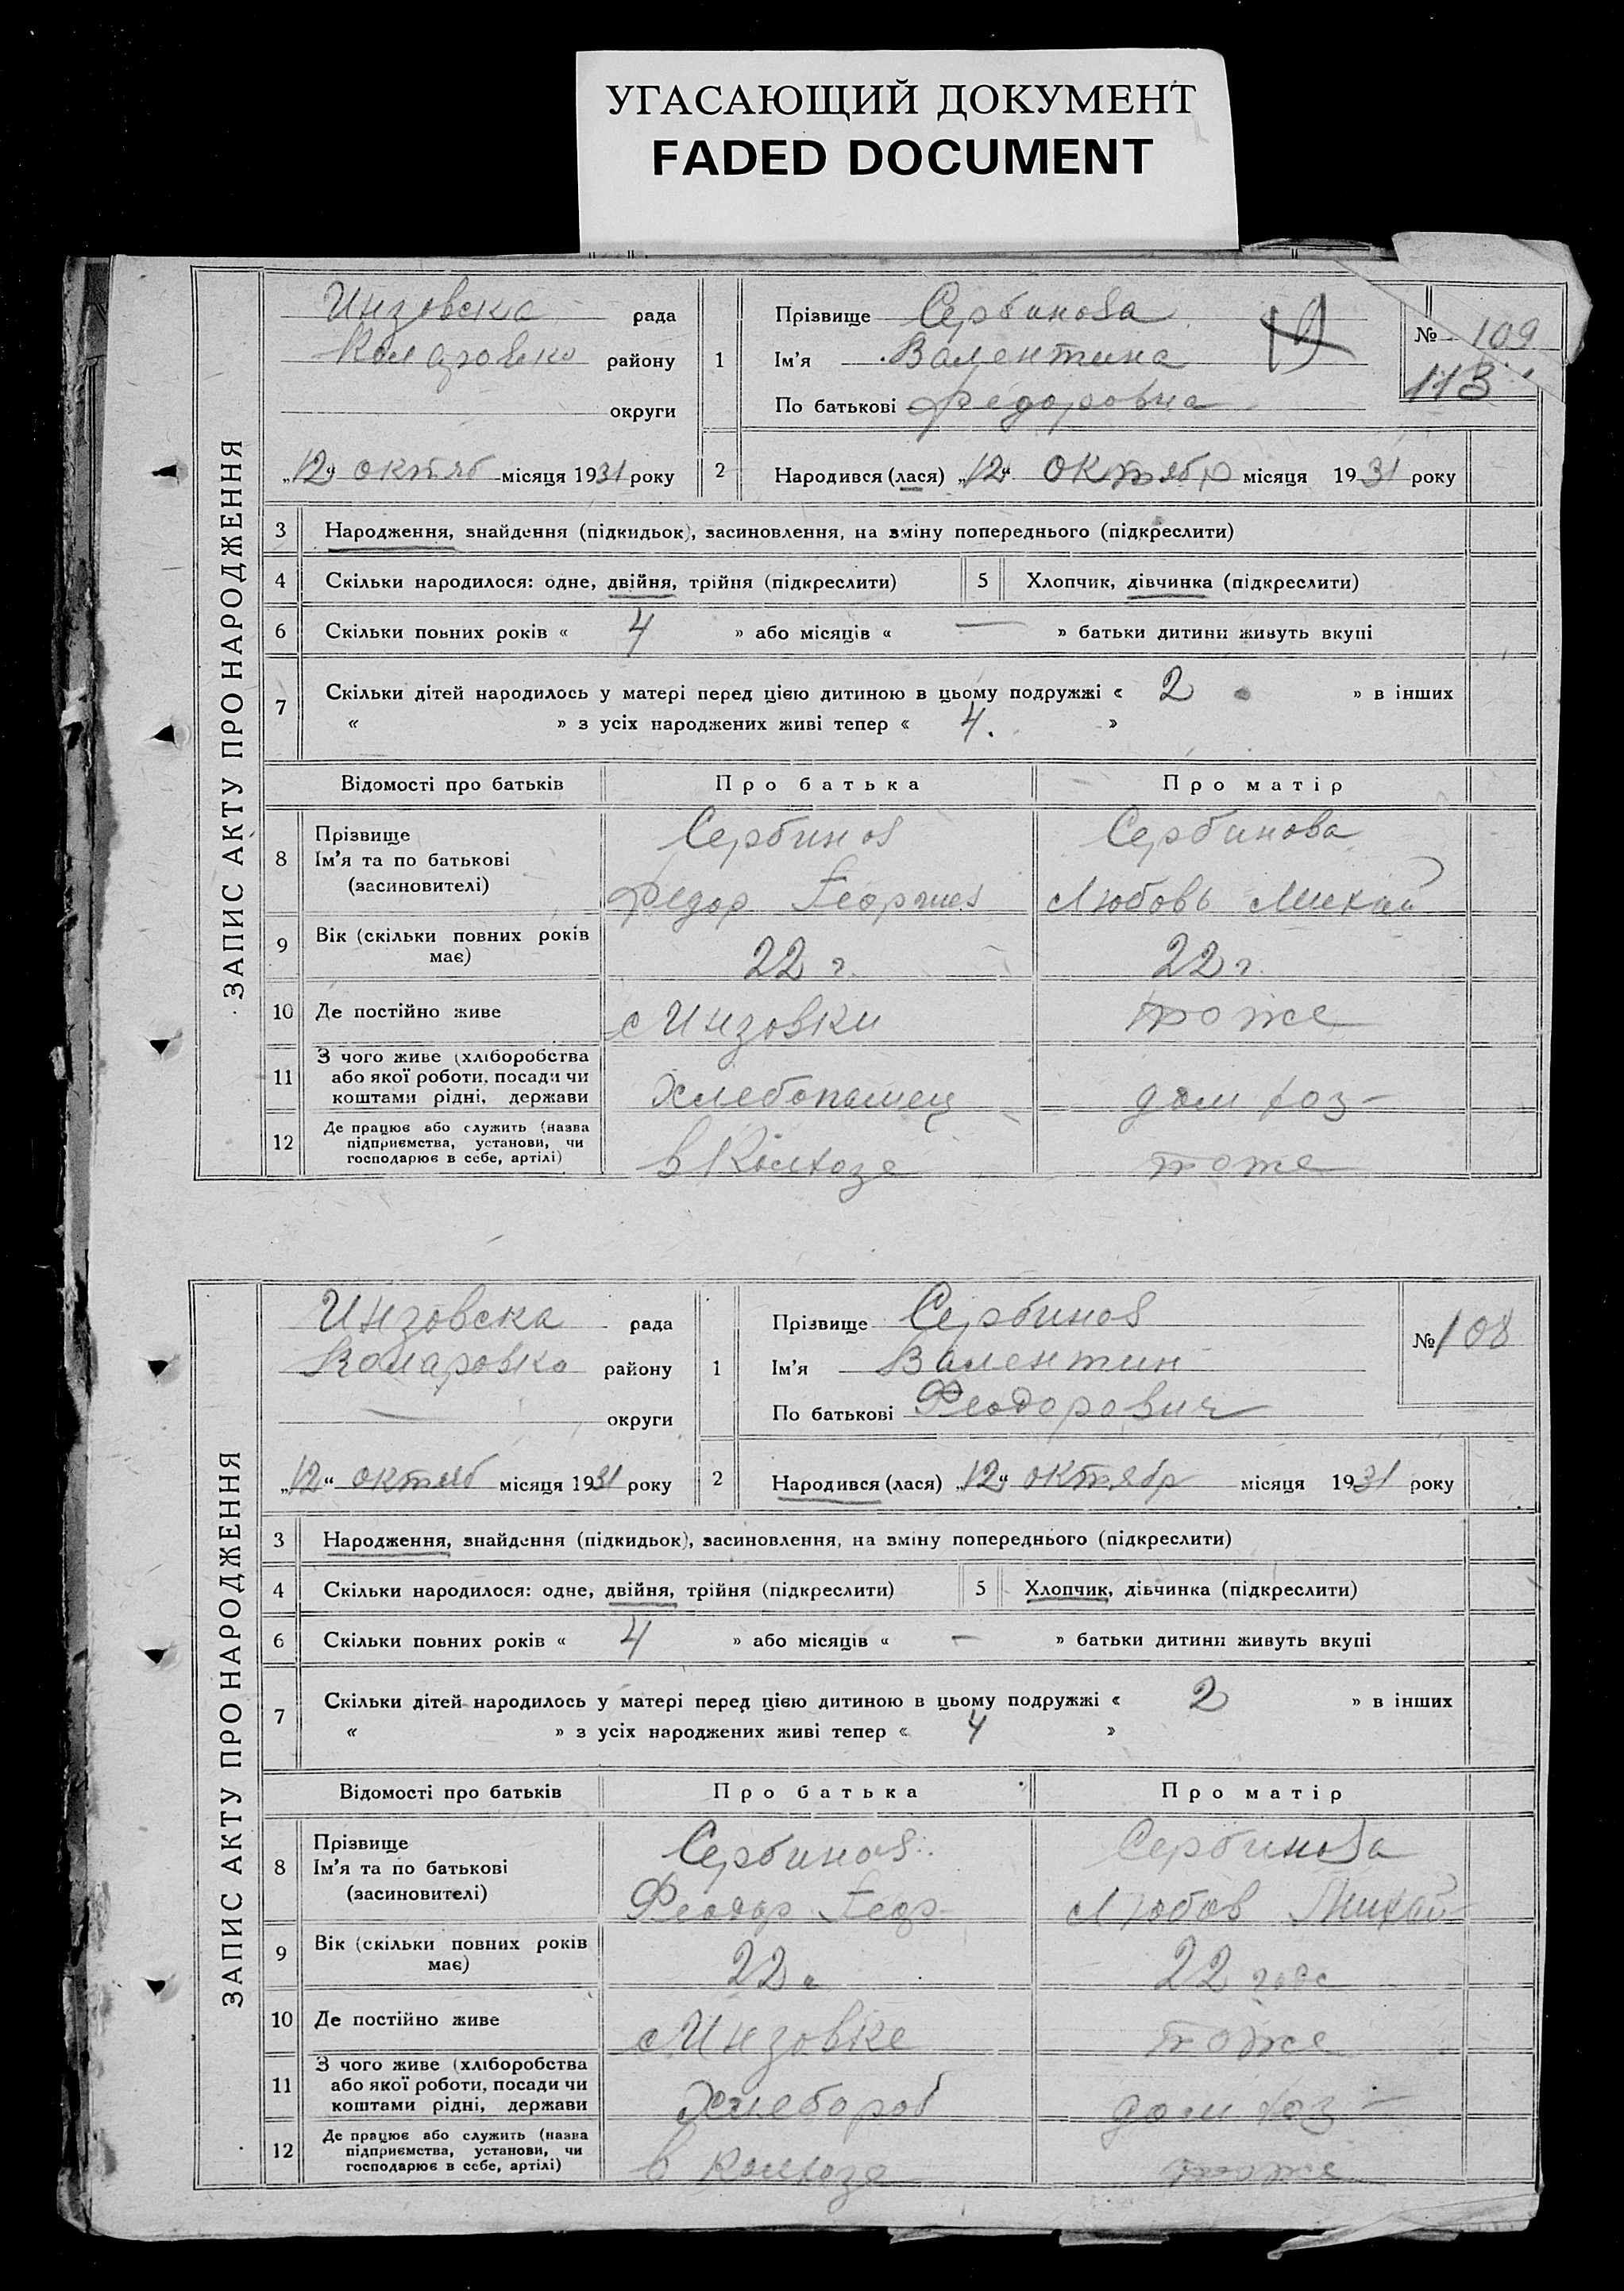 УГАСАЮЩИЙ ДОКУМЕНТ
FADED DOCUMENT
ЗАПИС АКТУ ПРО НАРОДЖЕННЯ
Инзовска рада
района району
округи
„12“ октяб місяця 1931 року
1 Прізвище Сербинова
Ім'я Валентина
По батькові Федоровна
№ 109
113
2 Народився (лася) „12“ октябр місяця 1931 року
3 Народження, знайдення (підкидьок), засиновлення, на зміну попереднього (підкреслити)
4 Скільки народилося: одне, двійня, трійня (підкреслити) 5 Хлопчик, дівчинка (підкреслити)
6 Скільки повних років « 4 » або місяців « — » батьки дитини живуть вкупі
7 Скільки дітей народилось у матері перед цією дитиною в цьому подружжі « 2 » в інших
« » з усіх народжених живі тепер « 4. »
Відомості про батьків Про батька Про матір
8 Прізвище
Ім'я та по батькові
(засиновителі)
Сербинов Сербинова
Федор Георгиев Любовь Михай
9 Вік (скільки повних років має) 22 г. 22 г.
10 Де постійно живе с Инзовки тоже
11 З чого живе (хліборобства
або якої роботи, посади чи
коштами рідні, держави
Хлебопашец дом хоз-
12 Де працює або служить (назва
підприємства, установи, чи
господарює в себе, артілі)
в Колхозе тоже
ЗАПИС АКТУ ПРО НАРОДЖЕННЯ
Инзовска рада
району
— округи
„12“ октяб місяця 1931 року
1 Прізвище Сербинов
Ім'я Валентин
По батькові Феодорович
№ 108
2 Народився (лася) „12“ октябр місяця 1931 року
3 Народження, знайдення (підкидьок), засиновлення, на зміну попереднього (підкреслити)
4 Скільки народилося: одне, двійня, трійня (підкреслити) 5 Хлопчик, дівчинка (підкреслити)
6 Скільки повних років « 4 » або місяців « — » батьки дитини живуть вкупі
7 Скільки дітей народилось у матері перед цією дитиною в цьому подружжі « 2 » в інших
« » з усіх народжених живі тепер « 4 »
Відомості про батьків Про батька Про матір
8 Прізвище
Ім'я та по батькові
(засиновителі)
Сербинов Сербинова
Феодор Геор- Любов Михай-
9 Вік (скільки повних років має) 22 22 года
10 Де постійно живе с Инзовке тоже
11 З чого живе (хліборобства
або якої роботи, посади чи
коштами рідні, держави
Хлебороб дом хоз-
12 Де працює або служить (назва
підприємства, установи, чи
господарює в себе, артілі)
в колхозе тоже